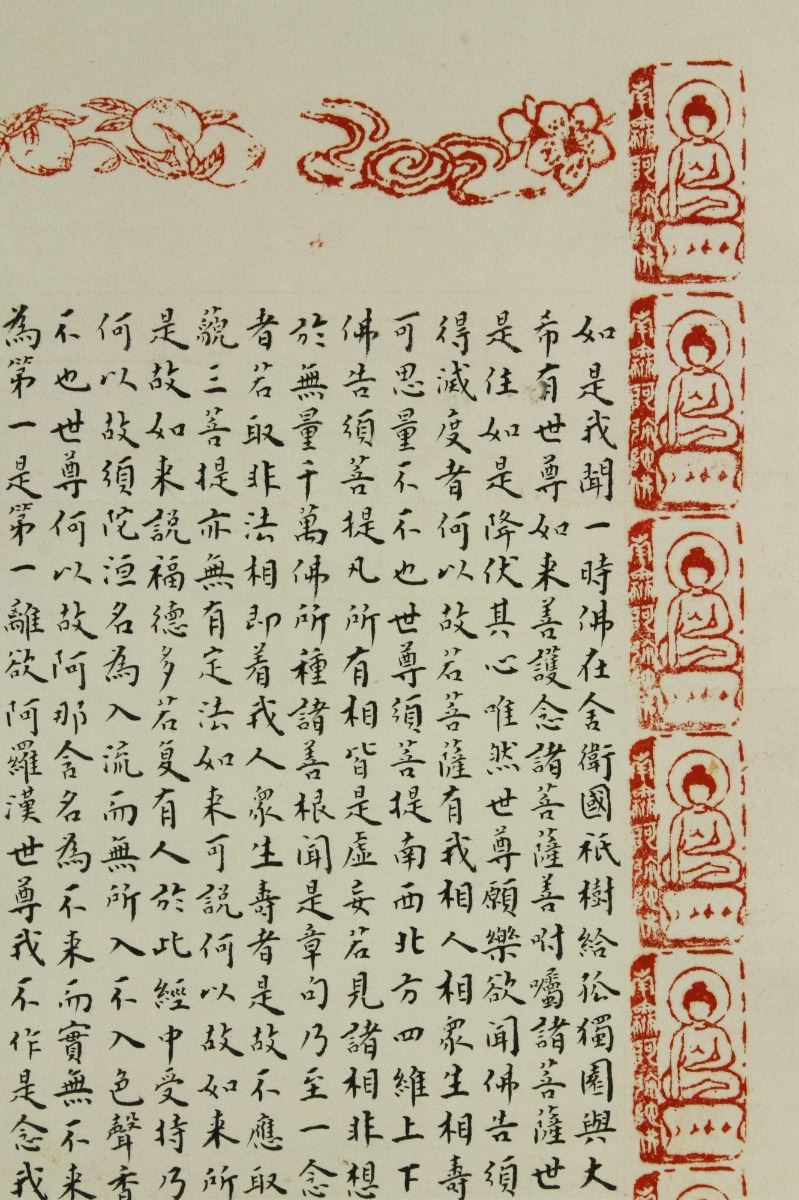 南無阿彌陀佛
南無阿彌陀佛
南無阿彌陀佛
南無阿彌陀佛
南無阿彌陀佛
如是我聞一時佛在舍衛國祇樹給孤獨園與大
希有世尊如来善護念諸菩薩善咐囑諸菩薩世
是住如是降伏其心唯然世尊願樂欲聞佛告須
得滅度者何以故若菩薩有我相人相衆生相壽
可思量不不也世尊須菩提南西北方四維上下
佛告須菩提凡所有相皆是虛妄若見諸相非想
於無量千萬佛所種諸善根聞是章句乃至一念
者若取非法相即着我人衆生壽者是故不應取
藐三菩提亦無有定法如来可說何以故如来所
是故如来說福德多若复有人於此經中受持乃
何以故須陀洹名為入流而無所入不入色聲香
不也世尊何以故阿那含名為不来而實無不来
為第一是第一離欲阿羅漢世尊我不作是念我